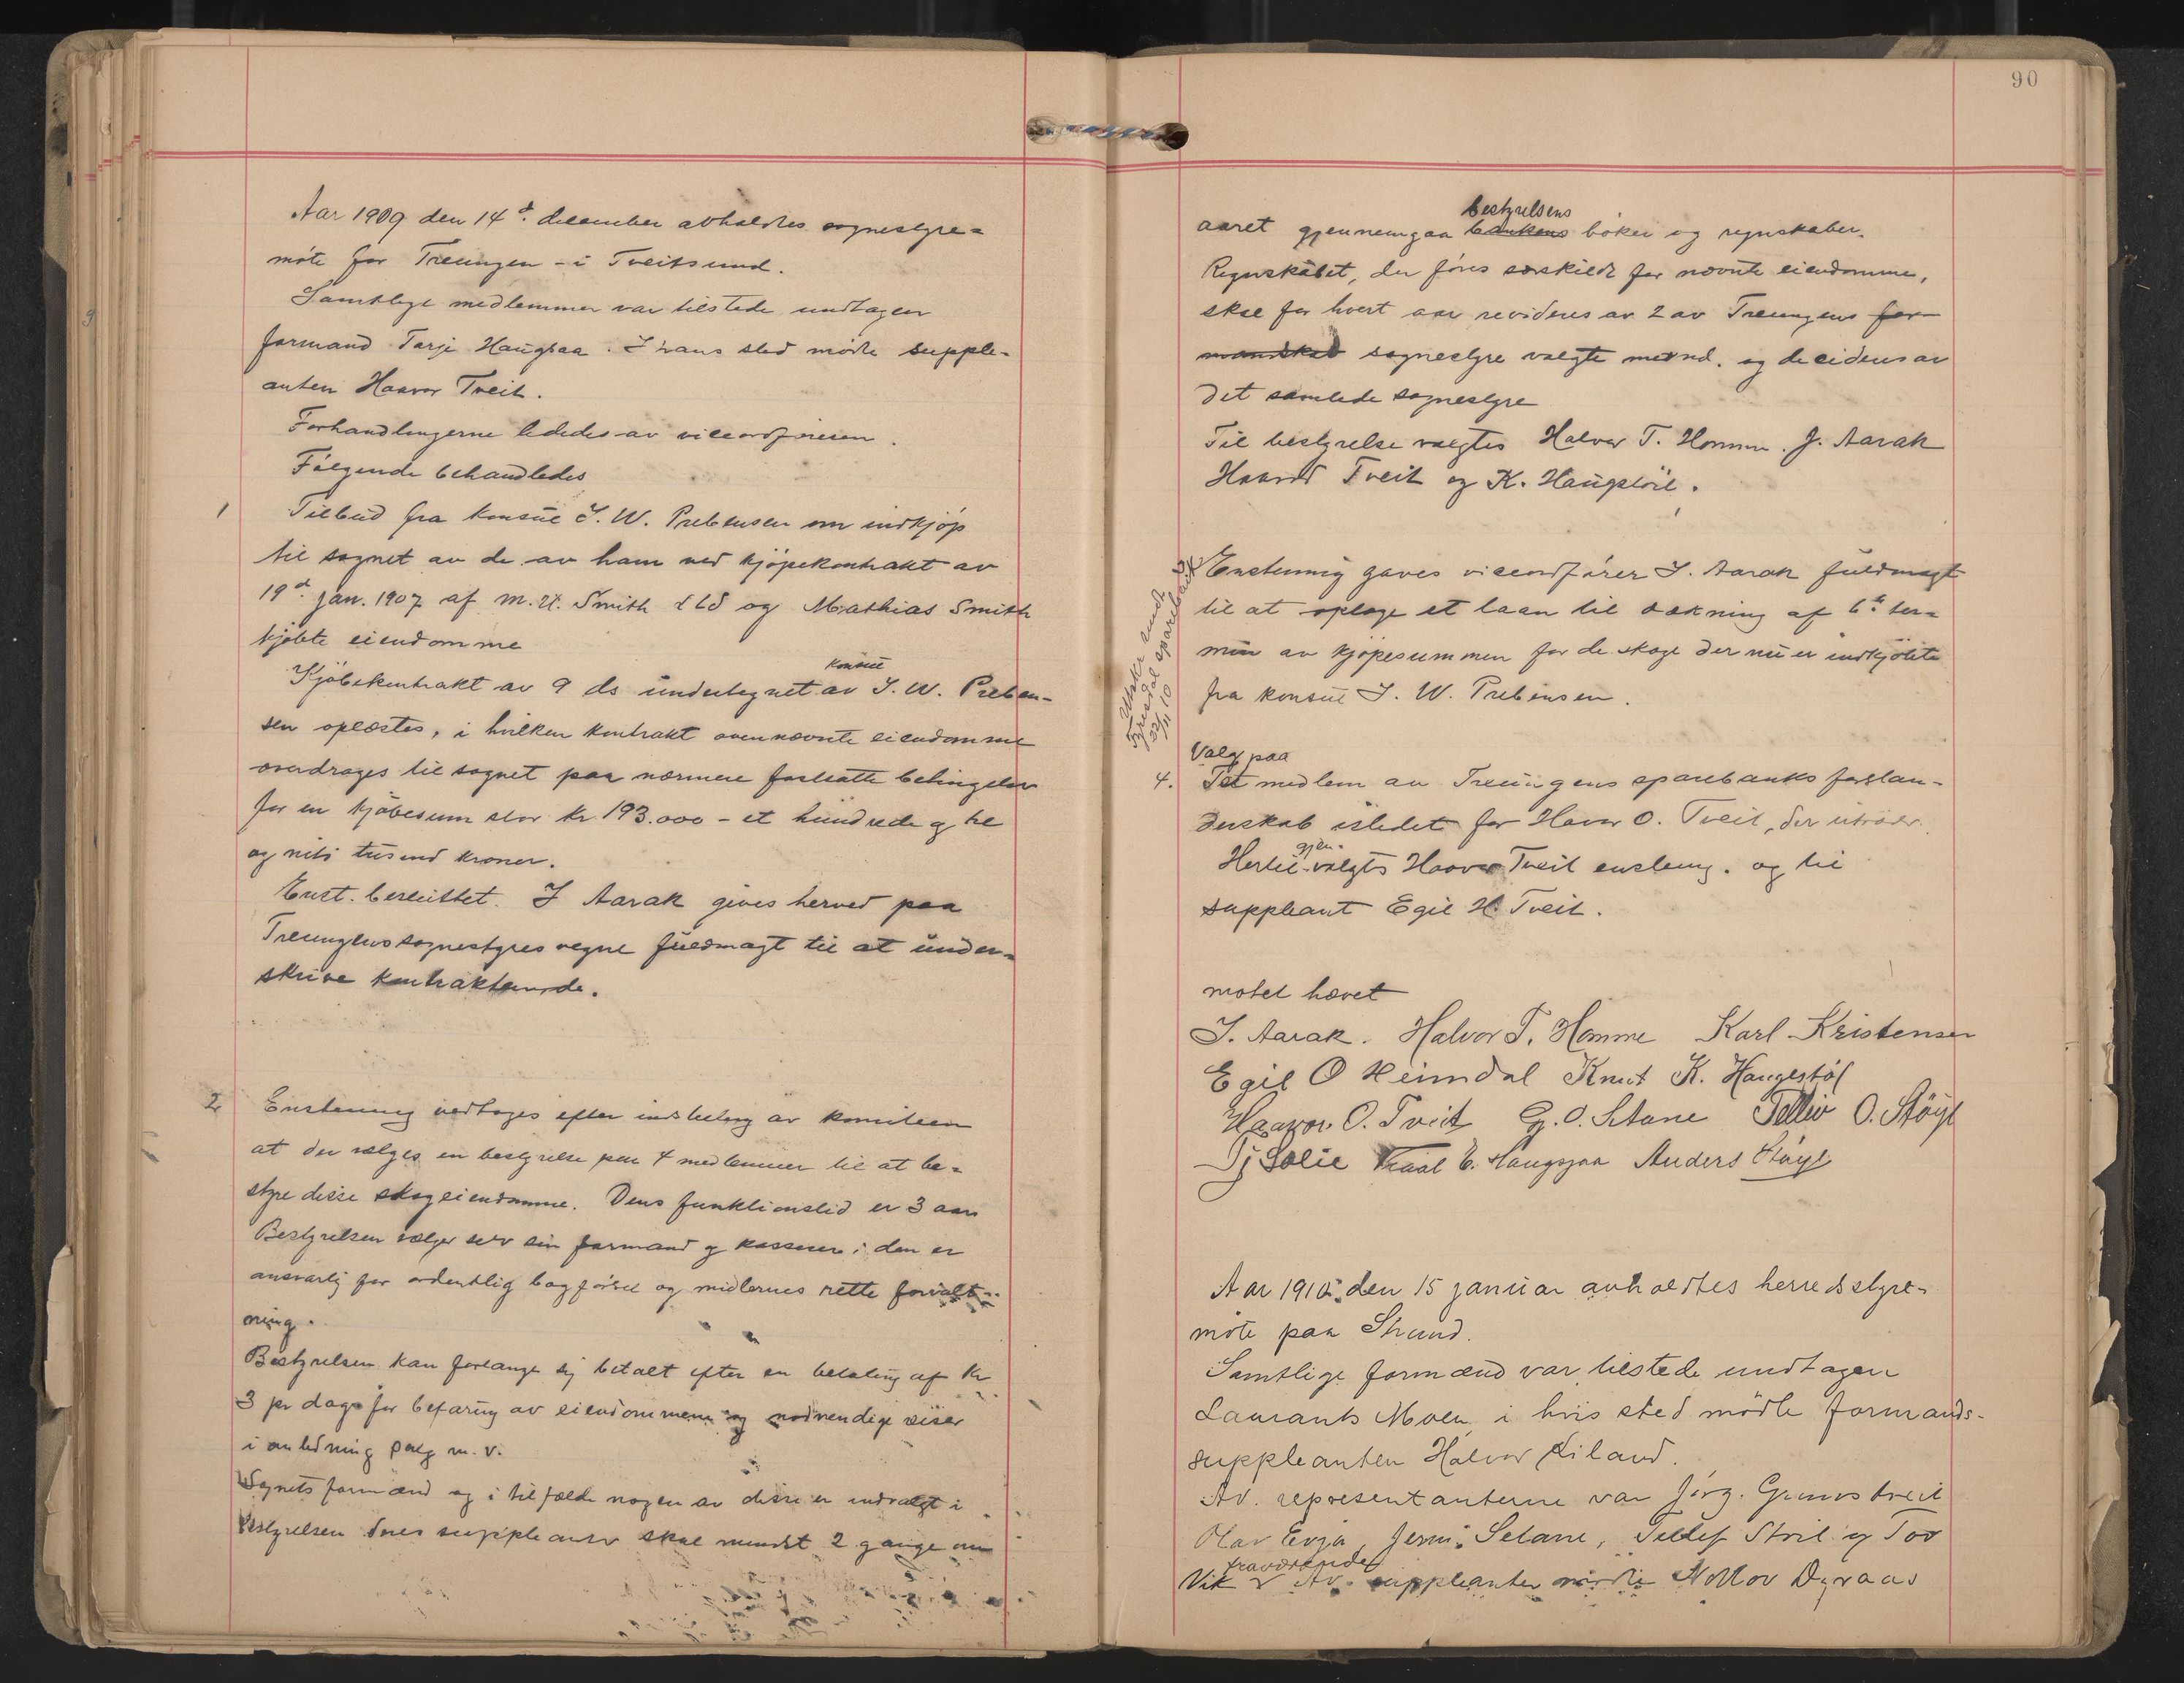 Aar 1909 den 14d. december avholdtes sognestyre=
möte for Treungen - i Tveitsund.
Samtlige medlemmer var tilstede undtagen
formand Tarje Haugsaa. I hans sted mödte supple-
anten Haavor Tveit.
Forhandlingerne lededes av viceordföreren.
Fölgende behandledes
1 Tilbud fra konsul J. W. Prebensen om indkjöp
til sognet av de av ham ved kjöpekontrakt av
19d. jan. 1907 af M. H. Smith & Co og Mathias Smith
kjöbte eiendomme
Kjöbekontrakt av 9 ds undertegnet av konsul J. W. Preben-
sen oplæstes, i hvilken kontrakt ovennævnte eiendomme
overdrages til sognet paa nærmere fastsatte betingelser
for en kjöbesum stor kr 193.000 - et hundrede og tre
og niti tusend kroner.
Enst. besluttet. J Aarak gives herved paa
Treungens sognestyres vegne fuldmagt til at under-
skrive kontrakten.
2 Enstemmig vedtoges efter indstilling av komiteen
at der vælges en bestyrelse paa 4 medlemmer til at be-
styre disse skogeiendomme. Dens funktionstid er 3 aar
Bestyrelsen vælger selv sin formand og kasserer; den er
ansvarlig for ordentlig bogförsel og midlernes rette forvalt-
ning.
Bestyrelsen kan forlange sig betalt efter en betaling af kr
3 pr dag for befaring av eiendommene og nödvendige reiser
i anledning salg m. v.
Sognets formænd og i tilfælde nogen av disse er indvalgt i
bestyrelsen deres suppleanter skal mindst 2 gange om
90
aaret gjennemgaa bankens bestyrelsens böker og regnskaber.
Regnskabet, der föres særskildt for nævnte eiendomme,
skal for hvert aar revideres av 2 av Treungens for-
mandskab sognestyre valgte mænd. og decideres av
det samlede sognestyre
Til bestyrelse valgtes Halvor T. Homme. J. Aarak
Haavor Tveit og K. Haugstöil.
3 Enstemmig gaves viceordförer J. Aarak fuldmagt
til at optage et laan til dækning af 1ste ter=
min av kjöpesummen for de skoge der nu er indkjöbte
fra konsul J. W. Prebensen.
Utskr sendt
Fyresdal sparebank
22/11 10
Valg paa
4. Et medlem av Treungens sparebanks forstan-
derskab istedet for Haavor O. Tveit, der uttræder.
Hertil gjen-valgtes Haavor Tveit enstemg. og til
suppleant Egil H. Tveit.
mötet hævet
J. Aarak. Halvor T. Homme Karl Kristensen
Egil O Heimdal Knut K. Haugestöl
Haavor O. Tveit G. O. Setane Tellev O. Stöyl
Tj Solie Traal E. Haugsjaa Anders Stöyl
Aar 1910 den 15 januar avholdtes herredsstyre-
möte paa Strand.
Samtlige formænd var tilstede undtagen
Laurants Moen i hvis sted mödte formands-
suppleanten Halvor Liland.
Av. representanterne var Jörg. Gunnstveit
Olav Evja, Jermi. Setane, Tellef Stöil og Tov
Vik fraværende Av. suppleanter mödte Nottov Dyraas